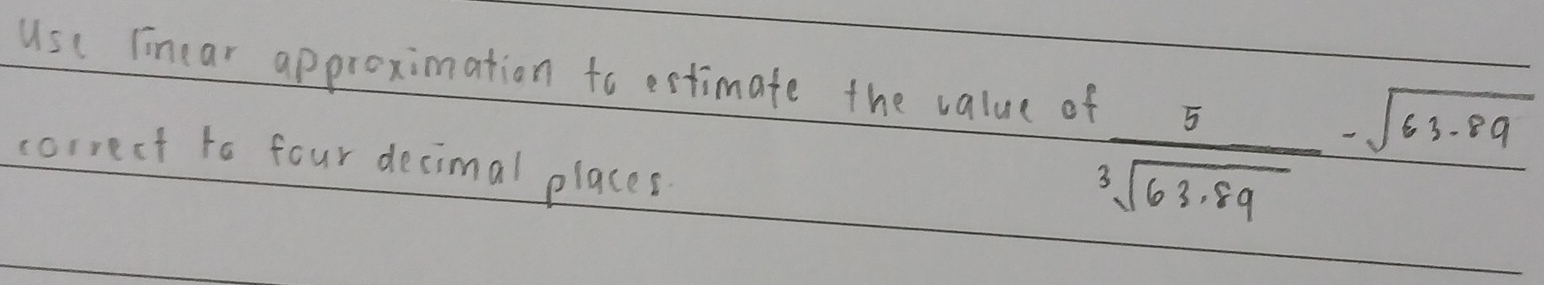 Use linear approximation to estimate the value of 5 / ∛63.89 - √63.89
correct to four decimal places.